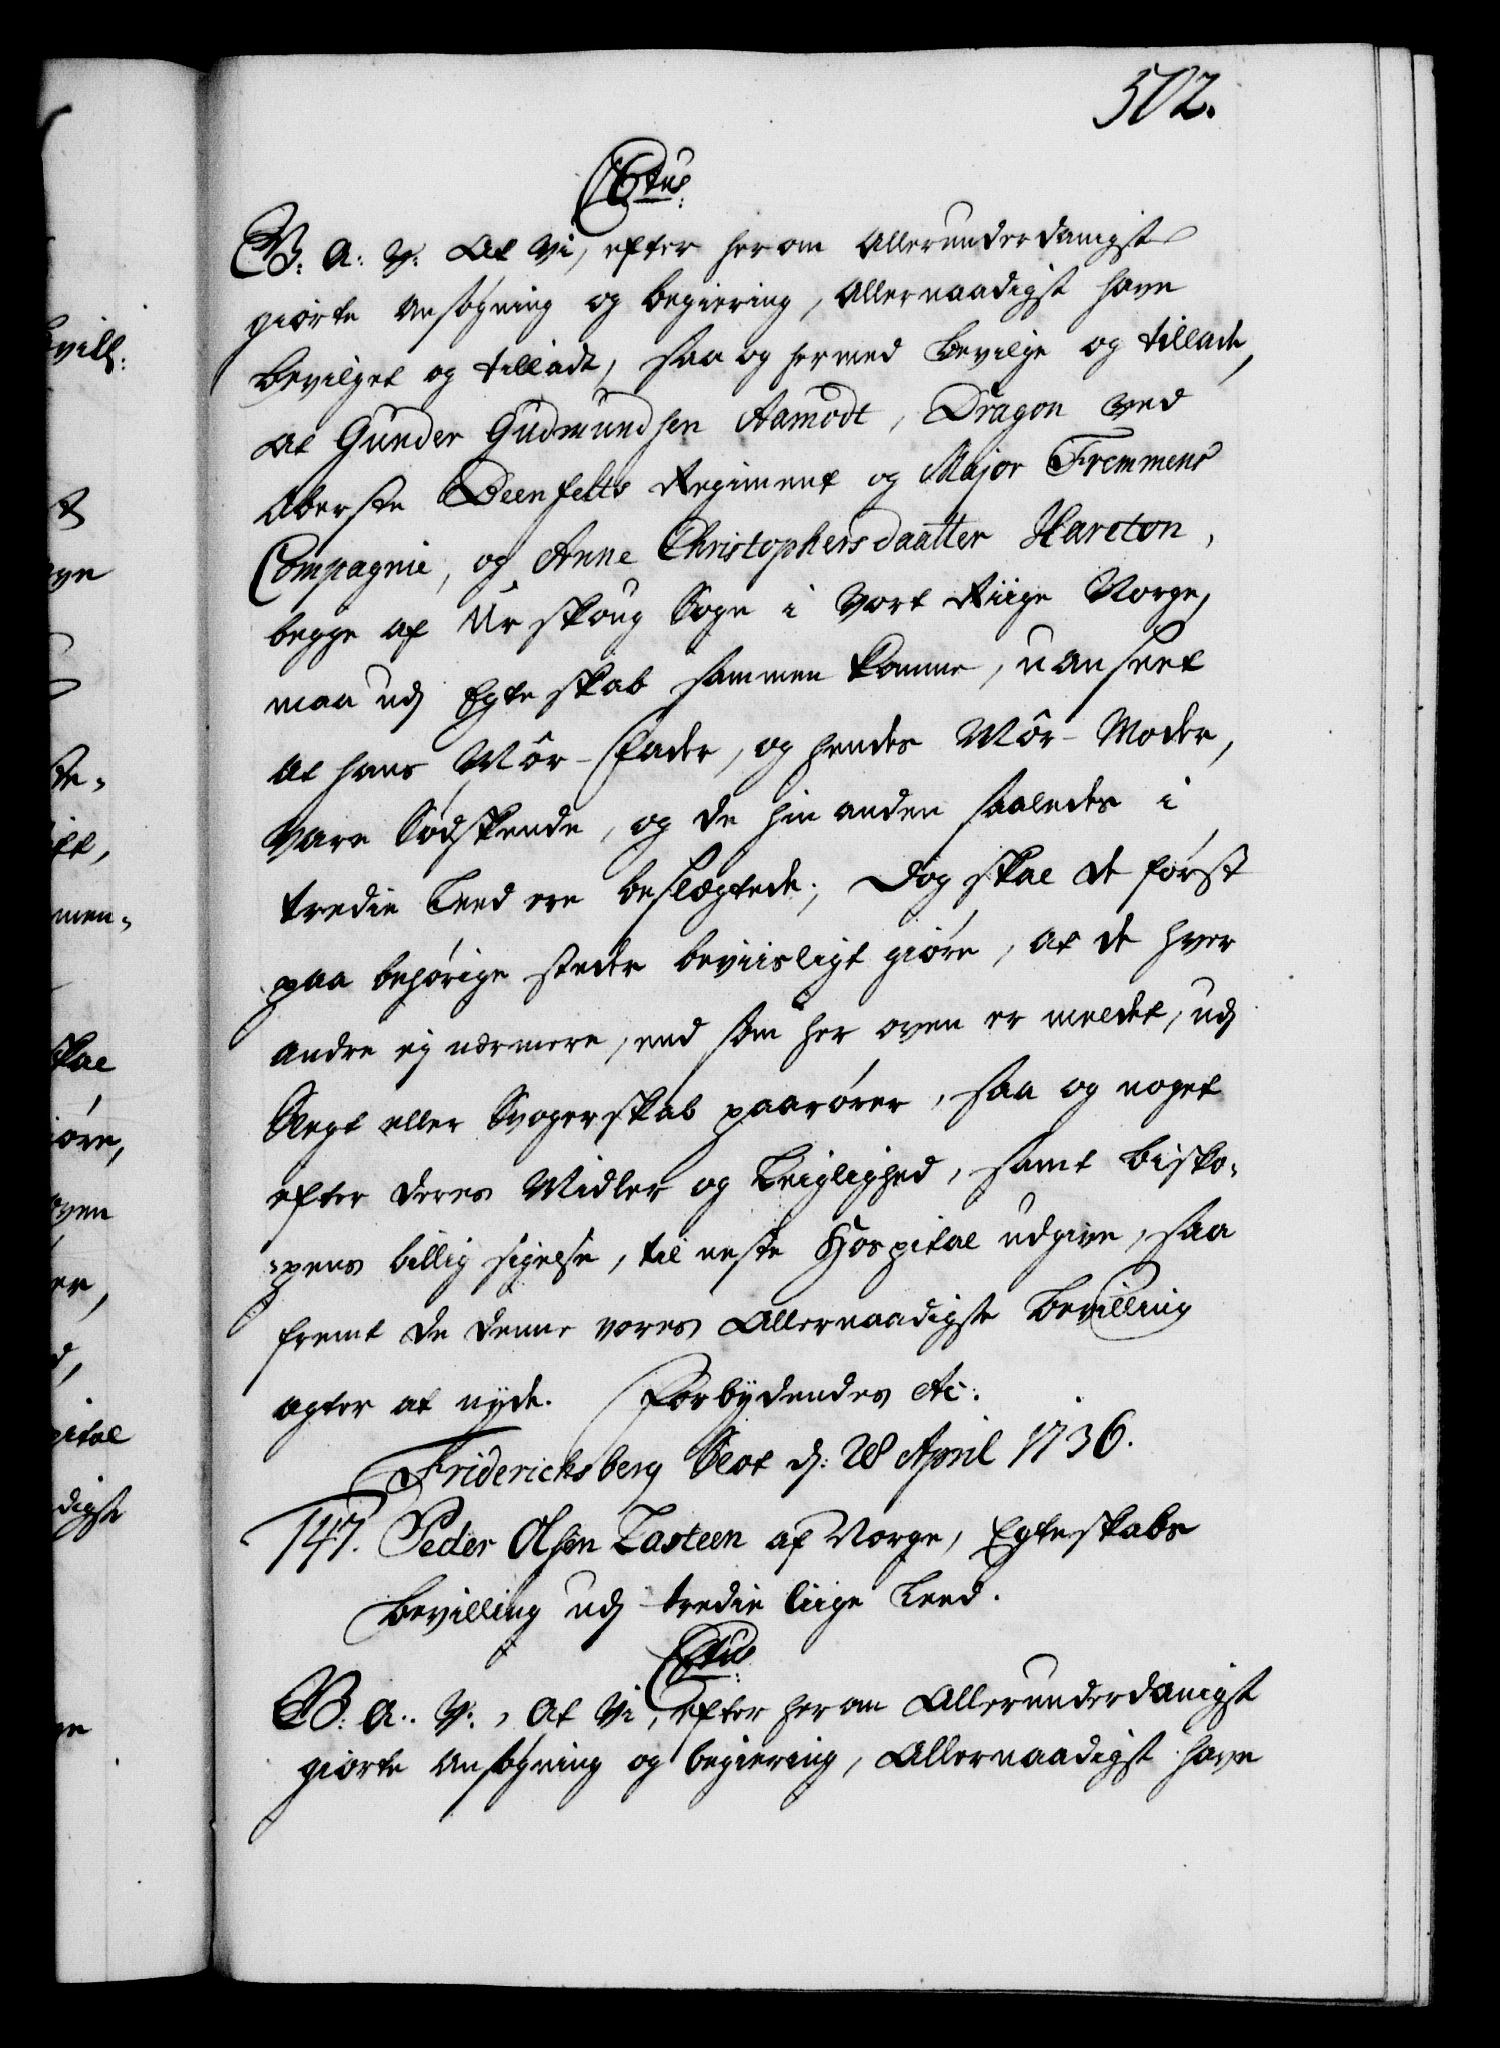 502.
Ctus.
G: A: V: At Vi, efter herom Allerunderdanigst
giorte Ansøgning og begiering, Allernaadigst have
bevilget og tilladt, saa og hermed bevilge og tillade,
at Gunder Gudmundsen Aamodt, Dragon ved
Oberste Deenfelts Regiment og Major Fremmens
Compagnie, og Anne Christophersdaatter Harcton,
begge af Urskoug Sogn i Vort Riige Norge,
maa udj Egteskab sammen komme, uanseet
at hans Mor-Fader, og hendes Mor-Moder,
vare Sødskende, og de hinanden saaledes i
tredie Leed ere beslægtede; Dog skal de først
paa behørige steder beviisligt giøre, at de hver
andre ej nærmere, end som her oven er meldet, udj
Slegt eller Svogerskab paarører, saa og noget
efter deres Midler og Leiglighed, samt bisko-
-pens billig sigelse, til neste Hospital udgive, saa
fremt de denne vores Allernaadigste bevilling
agter at nyde. Forbydendes etc:
Fridericksberg Slot d: 28 April 1736.
147. Peder Olsen Lasteen af Norge, Egteskabs
bevilling udj tredie liige Leed.
Ctus.
G: A: V:, At Vi, efter herom Allerunderdanigst
giorte Ansøgning og begiering, Allernaadigst have